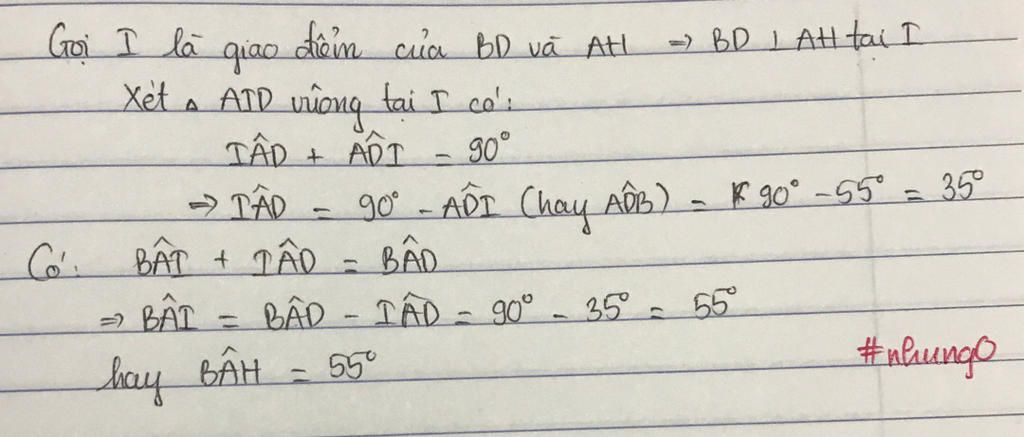 Gọi I là giao điểm của BD và AH => BD ⊥ AH tại I
Xét △ AID vuông tại I có:
IÂD + AD̂I = 90°
=> IÂD = 90° - AD̂I (hay AD̂B) = 90° - 55° = 35°
Có: BÂI + IÂD = BÂD
=> BÂI = BÂD - IÂD = 90° - 35° = 55°
hay BÂH = 55°
#nhungO